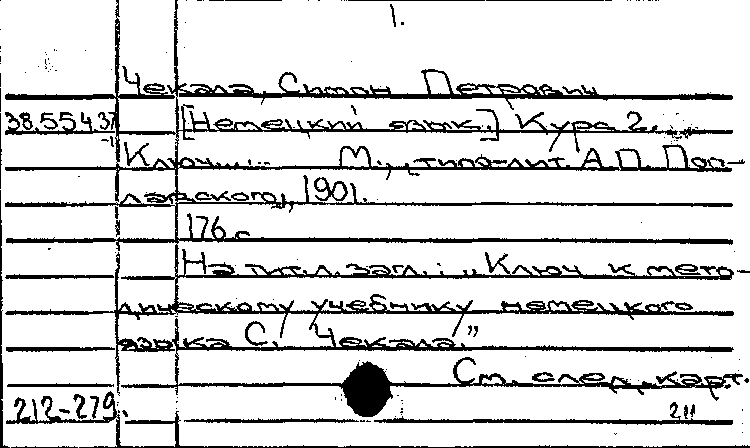 1.
Чекала, Симон Петрович
38.554.37 [Немецкий язык.] Курс 2.
-1 Ключ...... М., типо-лит. А.П. Поп-
лавского, 1901.
176 с.
На тит.л. загл.: „Ключ к мето-
дическому учебнику немецкого
языка С. Чекала.”
См. след. карт.
212-279.
211